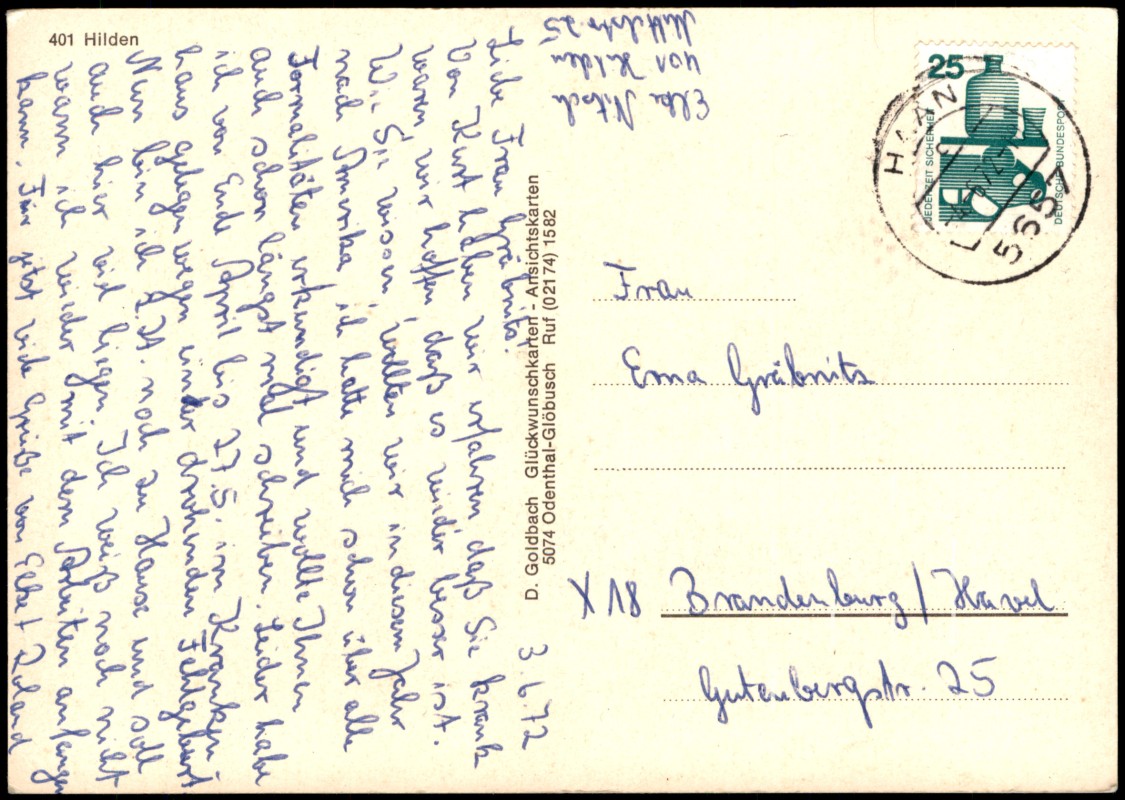 401 Hilden
Elke Nitsch
401 Hilden
Mittelstr. 25
3.6.72
Liebe Frau Gräbnitz!
Von Kurt haben wir erfahren daß Sie krank
waren, wir hoffen, daß es wieder besser ist.
Wie Sie wissen, wollten wir in diesem Jahr
nach Amerika, ich hatte mich schon über alle
Formalitäten erkundigt und wollte Ihnen
auch schon längst mal schreiben. Leider habe
ich von Ende April bis 27.5. im Kranken-
haus gelegen wegen einer drohenden Fehlgeburt
Nun bin ich z.Zt. noch zu Hause und soll
auch hier viel liegen. Ich weiß noch nicht
wann ich wieder mit dem Arbeiten anfangen
kann. Für jetzt viele Grüße von Elke +
D. Goldbach Glückwunschkarten - Ansichtskarten
5074 Odenthal-Glöbusch Ruf (02174) 1582
25
JEDERZEIT SICHERHEIT
DEUTSCHE BUNDESPOST
HAAN
5657
Frau
Erna Gräbnitz
X 18 Brandenburg / Havel
Gutenbergstr. 25